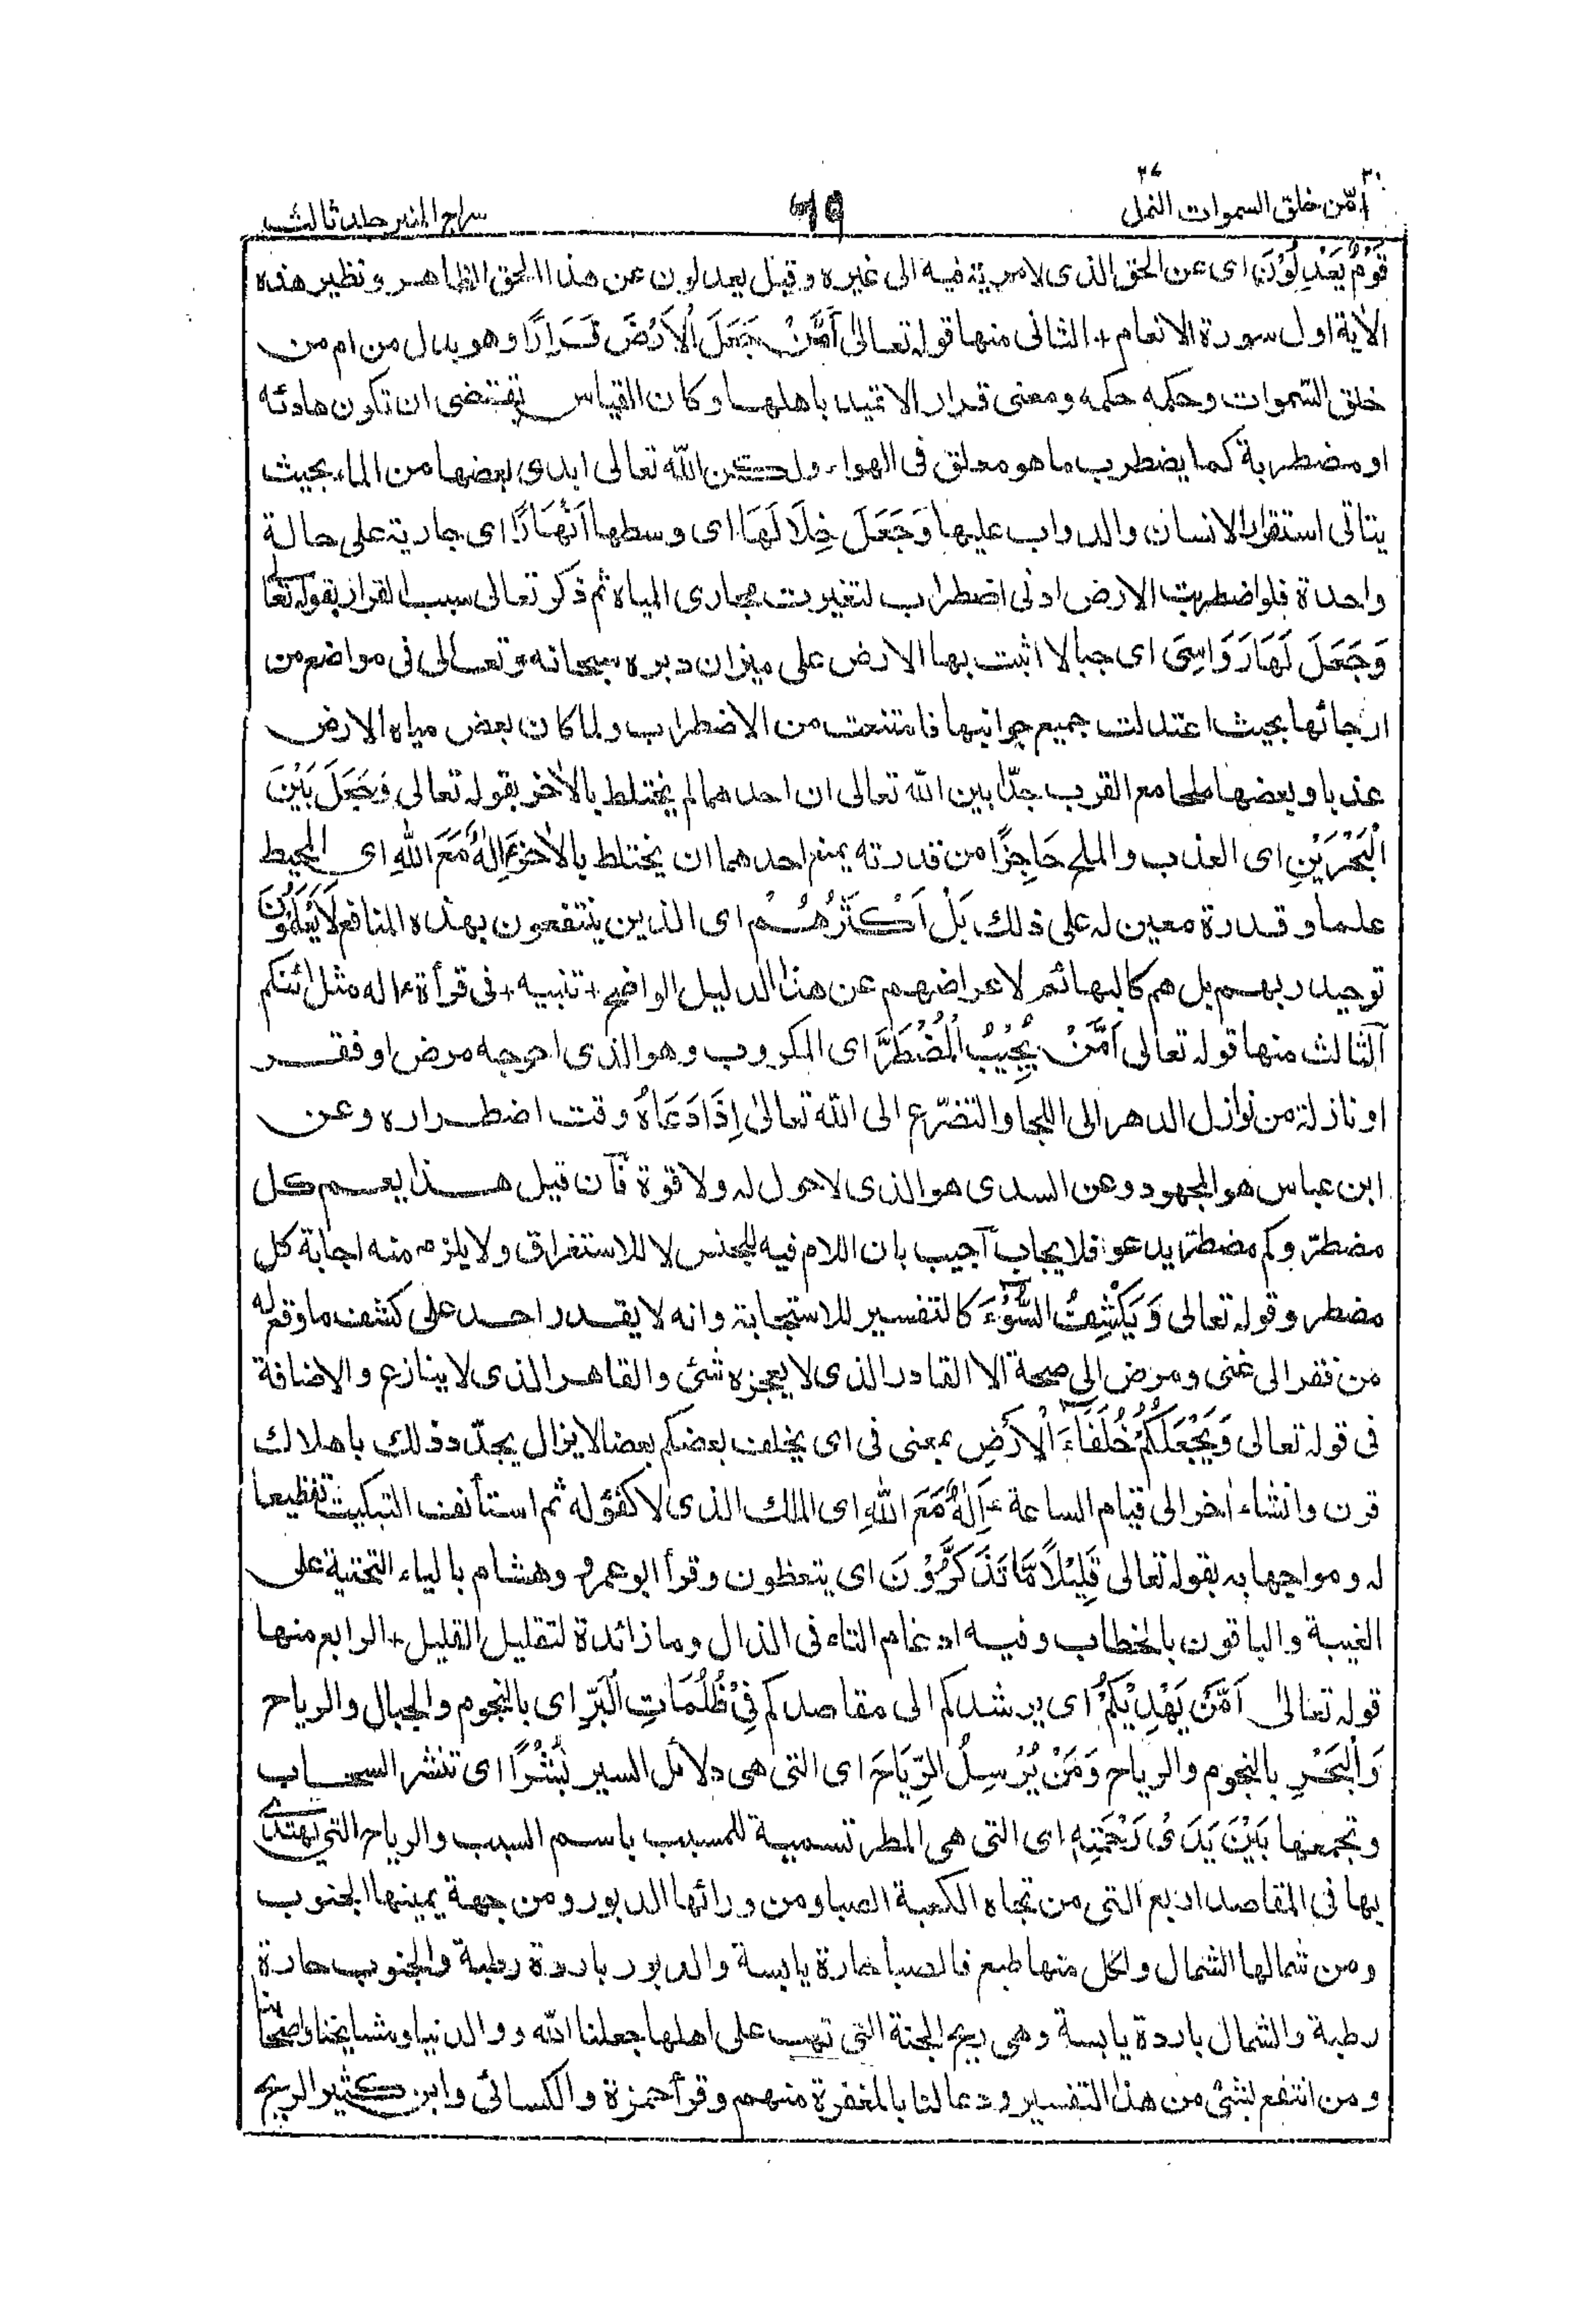 امّن خلق السموات النمل ٢٧ ٣٠ ٦٩ سراج المنير جلد ثالث
قَوْمٌ يَّعْدِلُوْنَ اى عن الحق الذى لا مرية فيه الى غيره وقيل يعدلون عن هذا الحق الظاهر ونظير هذه
الاٰية اول سورة الانعام + الثانى منها قوله تعالىٰ اَمَّنْ جَعَلَ الْاَرْضَ قَرَارًا وهو بدل من ام من
خلق السّموات وحكمه حكمه ومعنى قرار الا تميد باهلها وكان القياس يقتضى ان تكون هادئه
او مضطربة كما يضطرب ما هو معلق فى الهواء ولكن الله تعالى ابدى بعضها من الماء بحيث
يتاتى استقرار الانسان والدواب عليها وَجَعَلَ خِلَالَهَا اى وسطها اَنْهَارًا اى جارية على حالة
واحدة فلو اضطربت الارض ادنى اضطراب لتغيرت مجارى المياه ثم ذكر تعالى سبب القرار بقوله تعالى
وَجَعَلَ لَهَا رَوَاسِىَ اى جبالا اثبت بها الارض على ميزان دبره سبحانه وتعالى فى مواضع من
ارجائها بحيث اعتدلت جميع جوانبها فامتنعت من الاضطراب ولما كان بعض مياه الارض
عذبا وبعضها ملحا مع القرب جدّا بين الله تعالى ان احدهما لم يختلط بالاٰخر بقوله تعالى وَجَعَلَ بَيْنَ
الْبَحْرَيْنِ اى العذب والملح حَاجِزًا من قدرته يمنع احدهما ان يختلط بالاٰخر ءَاِلٰهٌ مَّعَ اللّٰهِ اى المحيط
علما وقدرة معين له على ذلك بَلْ اَكْثَرُهُمْ اى الذين ينتفعون بهذه المنافع لَا يَعْلَمُوْنَ
توحيد ربهم بل هم كالبهائم لاعراضهم عن هذا الدليل الواضح + تنبيه + فى قرأة ءاله مثل ائنكم
الثالث منها قوله تعالى اَمَّنْ يُّجِيْبُ الْمُضْطَرَّ اى المكروب وهو الذى احوجه مرض او فقر
او نازلة من نوازل الدهر الى اللجا والتضرّع الى الله تعالىٰ اِذَا دَعَاهُ وقت اضطراره وعن
ابن عباس هو المجهود وعن السدى هو الذى لا حول له ولا قوة فآن قيل هذا يعم كل
مضطرّ وكم مضطرّ يدعو فلا يجاب آجيب بان اللام فيه للجنس لا للاستغراق ولا يلزم منه اجابة كل
مضطر وقوله تعالى وَيَكْشِفُ السُّوْٓءَ كالتفسير للاستجابة وانه لا يقدر احد على كشف ما وقع له
من فقر الى غنى ومرض الى صحة الا القادر الذى لا يعجزه شئ والقاهر الذى لا ينازع والاضافة
فى قوله تعالى وَيَجْعَلُكُمْ خُلَفَآءَ الْاَرْضِ بمعنى فى اى يخلف بعضكم بعضا لا يزال يجدّد ذلك باهلاك
قرن وانشاء اٰخر الى قيام الساعة ءَاِلٰهٌ مَّعَ اللّٰهِ اى الملك الذى لا كفؤ له ثم استأنف التبكيت تفظيعا
له ومواجها به بقوله تعالى قَلِيْلًا مَّا تَذَكَّرُوْنَ اى يتعظون وقرأ ابو عمرو وهشام بالياء التحتية على
الغيبة والباقون بالخطاب وفيه ادغام التاء فى الذال وما زائدة لتقليل القليل + الرابع منها
قوله تعالىٰ اَمَّنْ يَّهْدِيْكُمْ اى يرشدكم الى مقاصدكم فِىْ ظُلُمَاتِ الْبَرِّ اى بالنجوم والجبال والرياح
وَالْبَحْرِ بالنجوم والرياح وَمَنْ يُّرْسِلُ الرِّيَاحَ اى التى هى دلائل السير نُشْرًا اى تنشر السحاب
وتجمعها بَيْنَ يَدَىْ رَحْمَتِهٖ اى التى هى المطر تسمية للمسبب باسم السبب والرياح التى يهتدى
بها فى المقاصد اربع التى من تجاه الكعبة الصبا ومن ورائها الدبور ومن جهة يمينها الجنوب
ومن شمالها الشمال ولكل منها طبع فالصبا حارة يابسة والدبور باردة رطبة والجنوب حارة
رطبة والشمال باردة يابسة وهى ريح الجنة التى تهب على اهلها جعلنا الله ووالدينا ومشايخنا واصحابنا
ومن انتفع بشئ من هذا التفسير ودعا لنا بالمغفرة منهم وقرأ حمزة والكسائى وابن كثير الريح